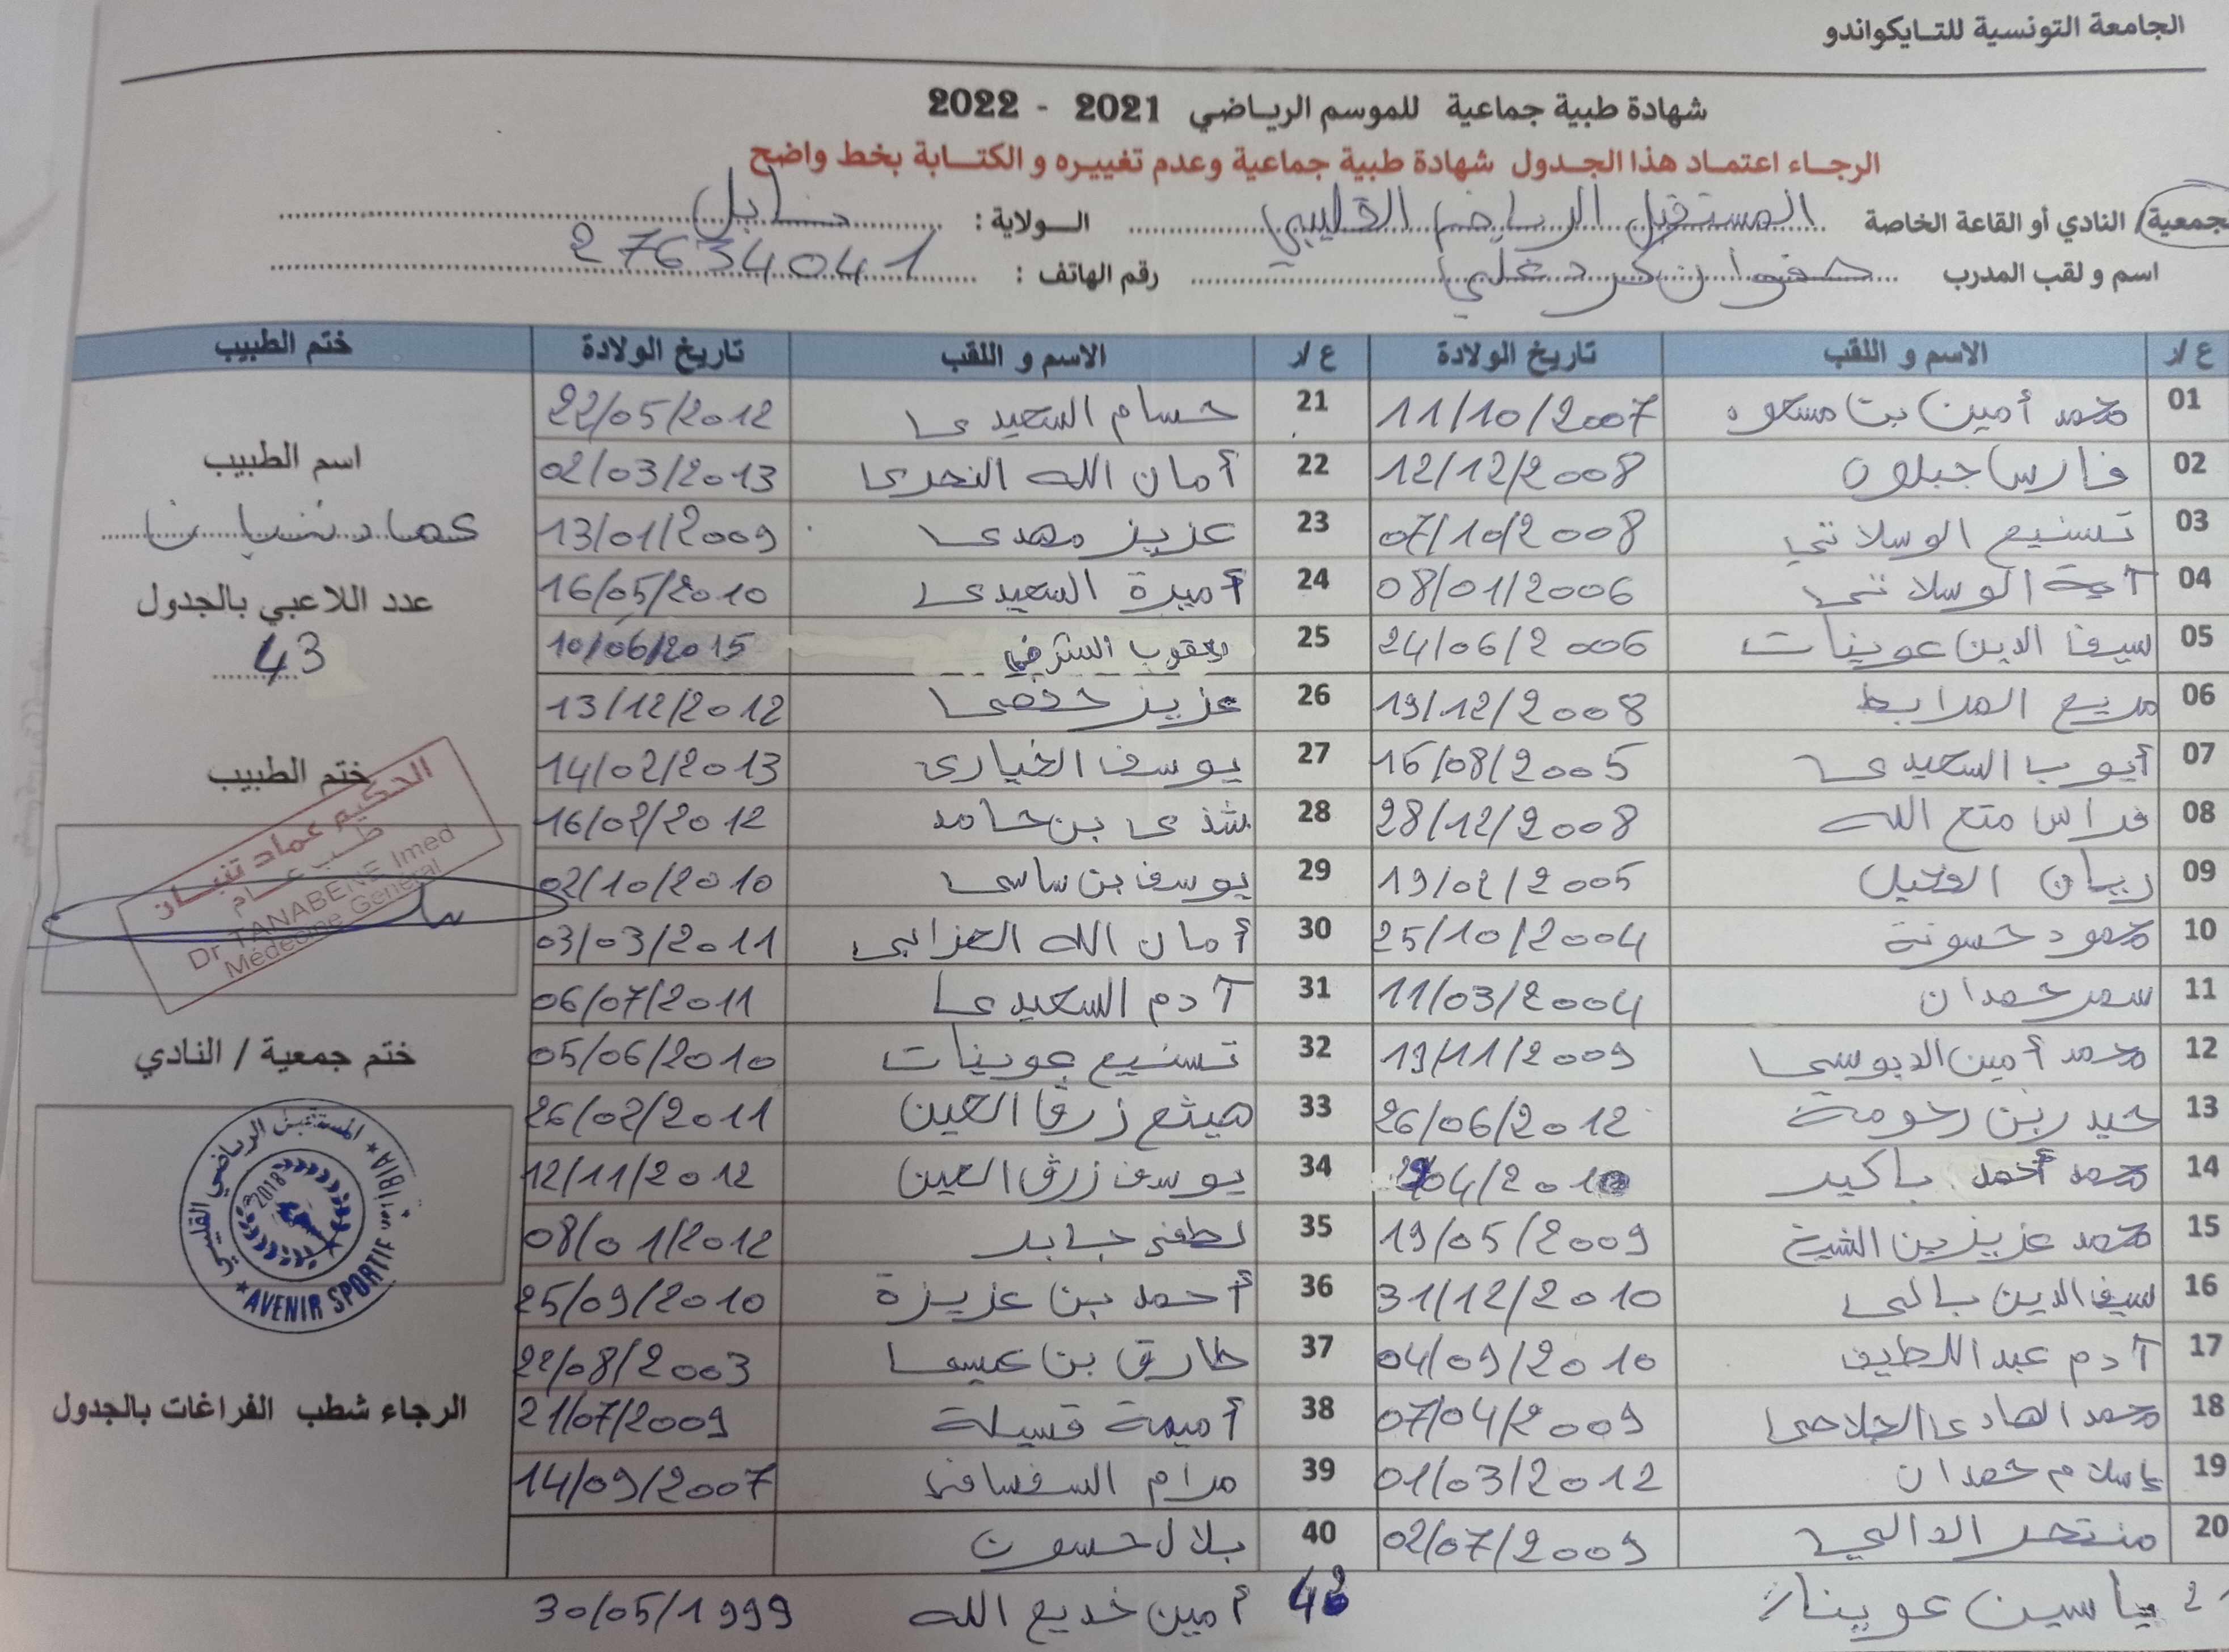 الجامعة التونسية للتـايكواندو
شهادة طبية جماعية للموسم الرياضي 2021 - 2022
الرجاء اعتماد هذا الجدول شهادة طبية جماعية وعدم تغييره و الكتابة بخط واضح
جمعية/ النادي أو القاعة الخاصة المستقبل الرياضي القليبي الولاية : نابل
اسم و لقب المدرب صفوان كردغلي رقم الهاتف : 27634041
ع/ر الاسم و اللقب تاريخ الولادة ع/ر الاسم و اللقب تاريخ الولادة ختم الطبيب
01 محمد أمين بن مسعود 11/10/2007 21 حسام السعيدي 22/05/2012
02 فارس جبلون 12/12/2008 22 أمان الله 02/03/2013
اسم الطبيب
03 تسنيم الوسلاتي 07/10/2008 23 عزيز مهدي 13/01/2009
عماد تنبان
04 آية الوسلاتي 08/01/2006 24 أميرة السعيدي 16/05/2010
عدد اللاعبي بالجدول
05 سيف الدين عوينات 24/06/2006 25 يعقوب 10/06/2015
43
06 مريم المرابط 19/12/2008 26 عزيز حفصي 13/12/2012
07 أيوب السعيدي 16/08/2005 27 يوسف الخياري 14/02/2013
ختم الطبيب
08 فراس متع الله 28/12/2008 28 شذى بن حامد 16/02/2012
الحكيم عماد تنبان
طب عام
Dr TANABENE Imed
Médecine Général
09 ريان الفحيل 19/02/2005 29 يوسف بن ساسي 02/10/2010
10 محمود حسونة 25/10/2004 30 أمان الله العزابي 03/03/2011
11 سمر حمدان 11/03/2004 31 آدم السعيدي 06/07/2011
12 محمد أمين الدبوسي 19/11/2009 32 تسنيم عوينات 05/06/2010
ختم جمعية / النادي
13 حيدر بن رحومة 26/06/2012 33 هيثم زرق العين 26/02/2011
14 محمد أحمد باكير 04/2010 34 يوسف زرق العين 12/11/2012
المستقبل الرياضي القليبي
2018
AVENIR SPORTIF
15 محمد عزيز بن الشيخ 19/05/2009 35 لطفي جابر 08/01/2012
16 سيف الدين بالي 31/12/2010 36 أحمد بن عزيزة 25/09/2010
17 آدم عبد اللطيف 04/09/2010 37 طارق بن عيسى 22/08/2003
18 محمد الهادي الجلاصي 07/04/2009 38 أميمة قسيلة 21/07/2009
الرجاء شطب الفراغات بالجدول
19 إسلام حمدان 01/03/2012 39 مرام السفسافي 14/09/2007
20 منتصر الدالي 02/07/2009 40 بلال حسون
ياسين عوينات أمين خديع الله 30/05/1999